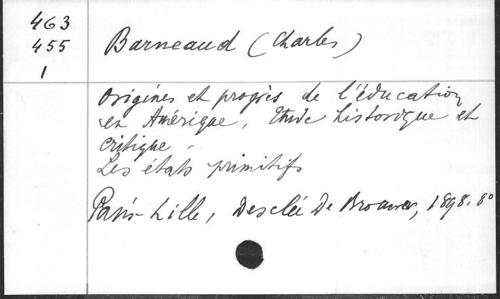 463
455
1
Barneaud (Charles)
Origines et progrès de l'éducation
en Amérique, Etude historique et
critique.
Les états primitifs
Paris-Lille, Desclée De Brouwer, 1898. 8°